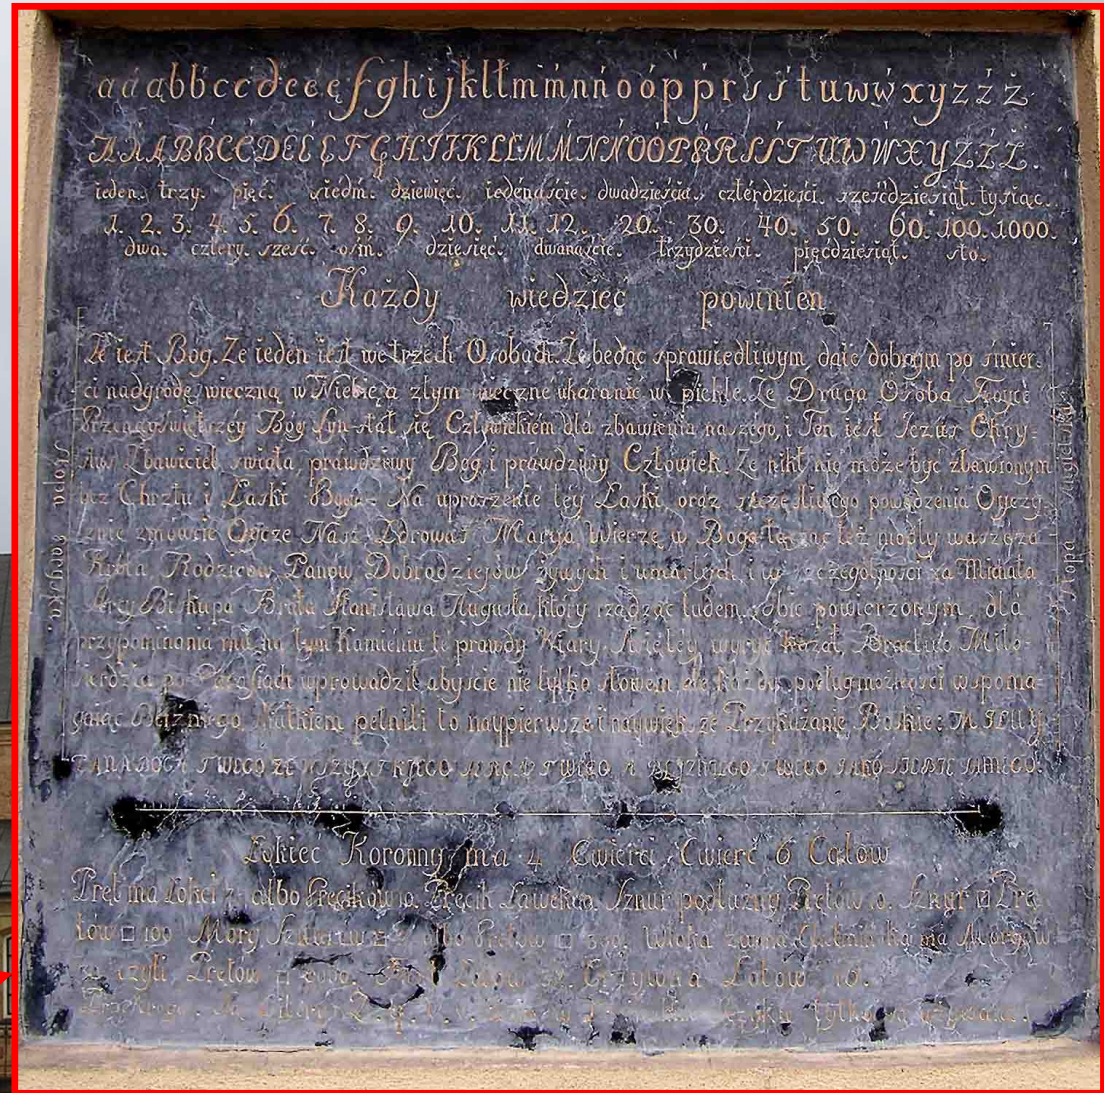 a á ą b b́ c ć d e é ę f g h i j k l ł m ḿ n ń o ó p ṕ r s ś t u w ẃ x y z ź ż
A Á Ą B B́ C Ć D E É Ę F G H I J K L Ł M Ḿ N Ń O Ó P Ṕ R S Ś T U W Ẃ X Y Z Ź Ż.
ieden. trzy. pięć. siedm. dziewięć. iedénaście. dwadzieścia. cztérdzieści. sześćdziesiąt. tysiąc.
1. 2. 3. 4. 5. 6. 7. 8. 9. 10. 11. 12. 20. 30. 40. 50. 60. 100. 1000.
dwa. cztery. sześć. ośm. dziesięć. dwanaście. trzydzieści. pięćdziesiąt. sto.
Każdy wiedzieć powinien
Że iest Bog. Ze ieden iest we trzech Osobach. Że będąc sprawiedliwym, daie dobrym po śmier-
ci nadgrodę wieczną w Niebie, a złym wieczne ukaranie w piekle. Że Druga Osoba Troyce
Przenayświętszey Bog Syn stał się Człowiekiem dla zbawienia naszego, i Ten iest Jezus Chry-
stus Zbawiciel świata, prawdziwy Bog, i prawdziwy Człowiek. Że nikt nie może być zbawionym
bez Chrztu i Łaski Boga. Na uproszenie tey Łaski, oraz szczęśliwego powodzenia Oyczy-
znie zmówcie Oycze Nasz, Zdrowaś Marya, Wierzę w Boga łącząc też modły wasze za
Króla, Rodziców, Panow, Dobrodziejów żywych i umarłych, i w szczególności za Michała
Arcy-Biskupa Brata Stanisława Augusta, który rządząc ludem sobie powierzonym, dla
przypominania mu, na tym Kamieniu te prawdy Wiary Swiętey wyryć kazał, Bractwo Miło-
sierdzia po Parafiach wprowadził, abyście nie tylko słowem, ale każdy podług możności wspoma-
gaiąc Bliźniego, datkiem pełnili to naypierwsze i naywiększe Przykazanie Boskie: MIŁUY
PANA BOGA TWEGO ZE WSZYSTKIEGO SERCA TWEGO, A BLIŹNIEGO TWEGO JAKO SIEBIE SAMEGO.
Stopa Paryska.
Stopa Angielska
Łokieć Koronny ma 4 Cwierci, Cwierć 6 Calów
Pręt ma Łokci 7½ albo Pręcików 10. Pręcik Ławek 10. Sznur podłużny Prętów 10. Sznur □ Prę-
tów □ 100 Morg Sznurów □ 3 albo Prętów □ 300. Włoka Zawna Chełmińska ma Morgów
30 czyli Prętow □ 9000. Łotow 32. Grzywna Łotow 16.